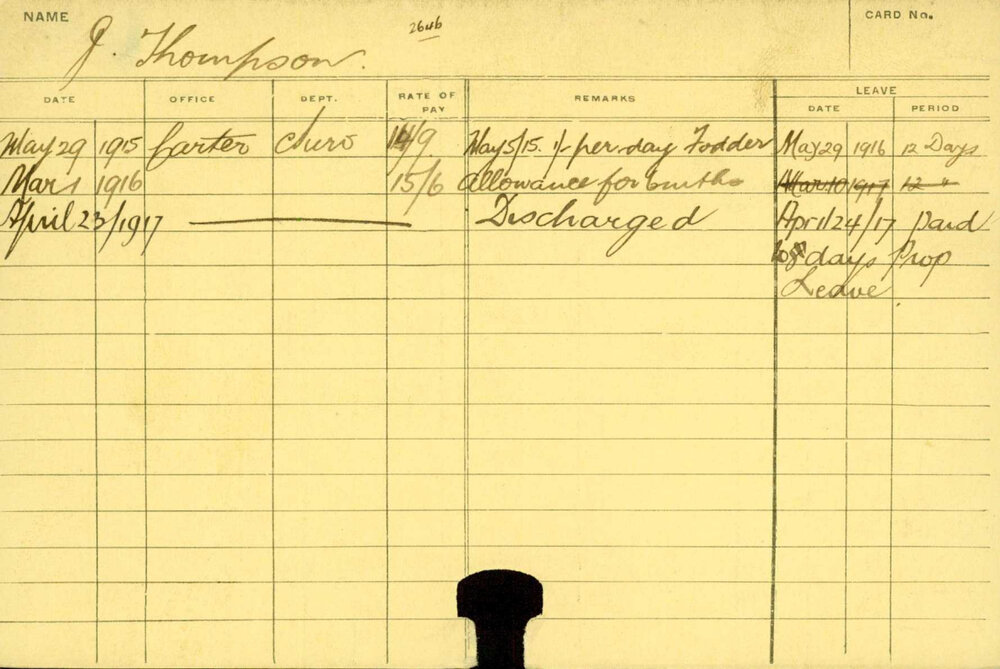 NAME
2646
CARD No.
J. Thompson.
DATE OFFICE DEPT. RATE OF PAY REMARKS LEAVE
DATE PERIOD
May 29 1915 Carter 14/9 May 5/15. 1/- per day Fodder May 29 1916 12 Days
Mar 1 1916 15/6 Allowance for 6 mths Mar 10 1917 12 "
April 23/1917 Discharged April 24/17 paid
days Prop
Leave